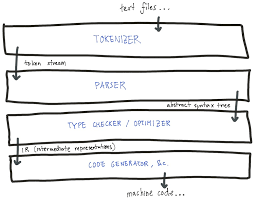 text files...
TOKENIZER
token stream
PARSER
abstract syntax tree
TYPE CHECKER / OPTIMIZER
IR (intermediate representations)
CODE GENERATOR, &c.
machine code...